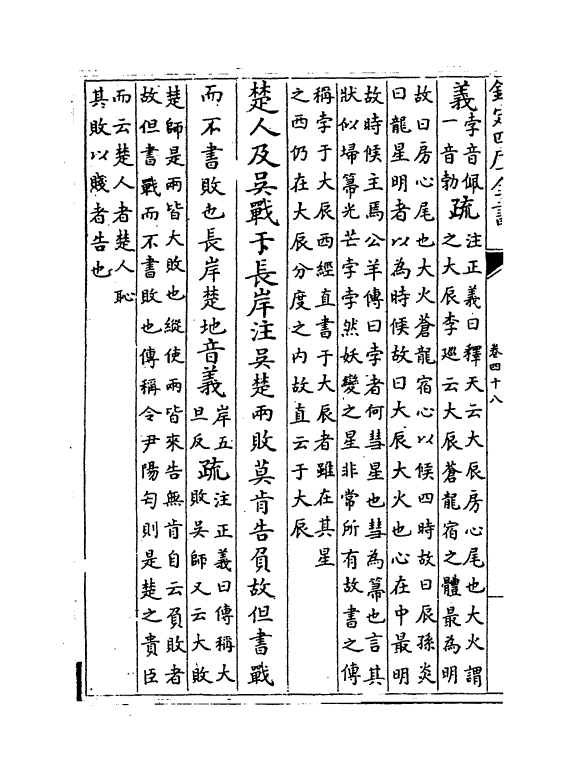 欽定四庫全書
卷四十八
義孛音佩一音勃疏注正義曰釋天云大辰房心尾也大火謂
之大辰李廵云大辰蒼龍宿之體最為明
故曰房心尾也大火蒼龍宿心以候四時故曰辰孫炎
曰龍星明者以為時候故曰大辰大火也心在中最明
故時候主焉公羊傳曰孛者何彗星也彗為篲也言其
狀似埽篲光芒孛孛然妖變之星非常所有故書之傳
稱孛于大辰西經直書于大辰者雖在其星
之西仍在大辰分度之内故直云于大辰
楚人及吳戰于長岸注吳楚兩敗莫肯告負故但書戰
而不書敗也長岸楚地音義岸五旦反疏注正義曰傳稱大
敗吳師又云大敗
楚師是兩皆大敗也縱使兩皆來告無肯自云負敗者
故但書戰而不書敗也傳稱令尹陽匄則是楚之貴臣
而云楚人者楚人恥
其敗以賤者告也